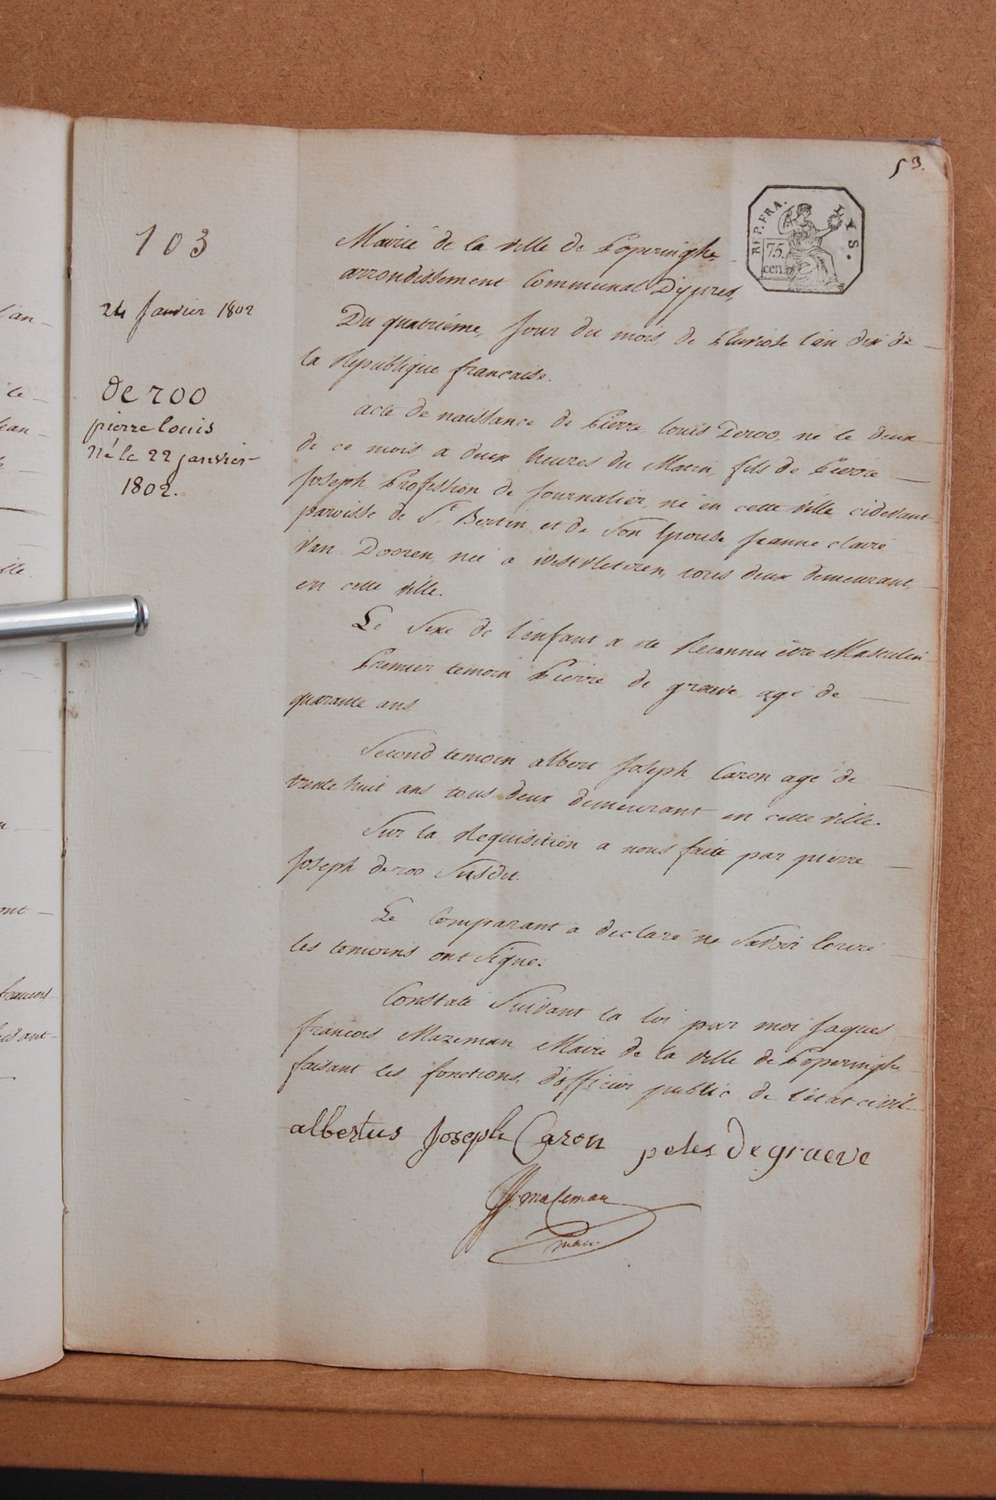 53.
REP. FRA. LYS.
75.
cen.
103
24 Janvier 1802
De roo
pierre louis
né le 22 janvier
1802.
Mairie de la ville de Poperinghe
arrondissement Communal D'ypres,
Du quatrieme, Jour du mois de Pluviose l'an dix de
la Republique francaise.
acte de naissance de Pierre Louis Deroo, né le deux
de ce mois a deux heures du Matin, fils de Pierre
Joseph Profession de Journalier, né en cette ville cidevant
paroisse de St Bertin, et de Son Epouse Jeanne claire
Van Dooren, née a westvleteren, tous deux demeurant,
en cette ville.
Le Sexe de l'enfant a été Reconnu être Masculin
Premier temoin Pierre de graeve agé de
quarante ans
Second temoin albert Joseph Caron agé de
trente huit ans tous deux demeurant en cette ville.
Sur la Requisition a nous faite par pierre
Joseph deroo Susdit.
Le Comparant a declaré ne Savoir Ecrire
les temoins ont Signé.
Constaté Suivant la loi par moi Jaques
francois Mazeman Maire de la ville de Poperinghe
faisant les fonctions d'officier public de l'état civil.
albertus Joseph Caron petes De graeve
JJ. mazeman
maire